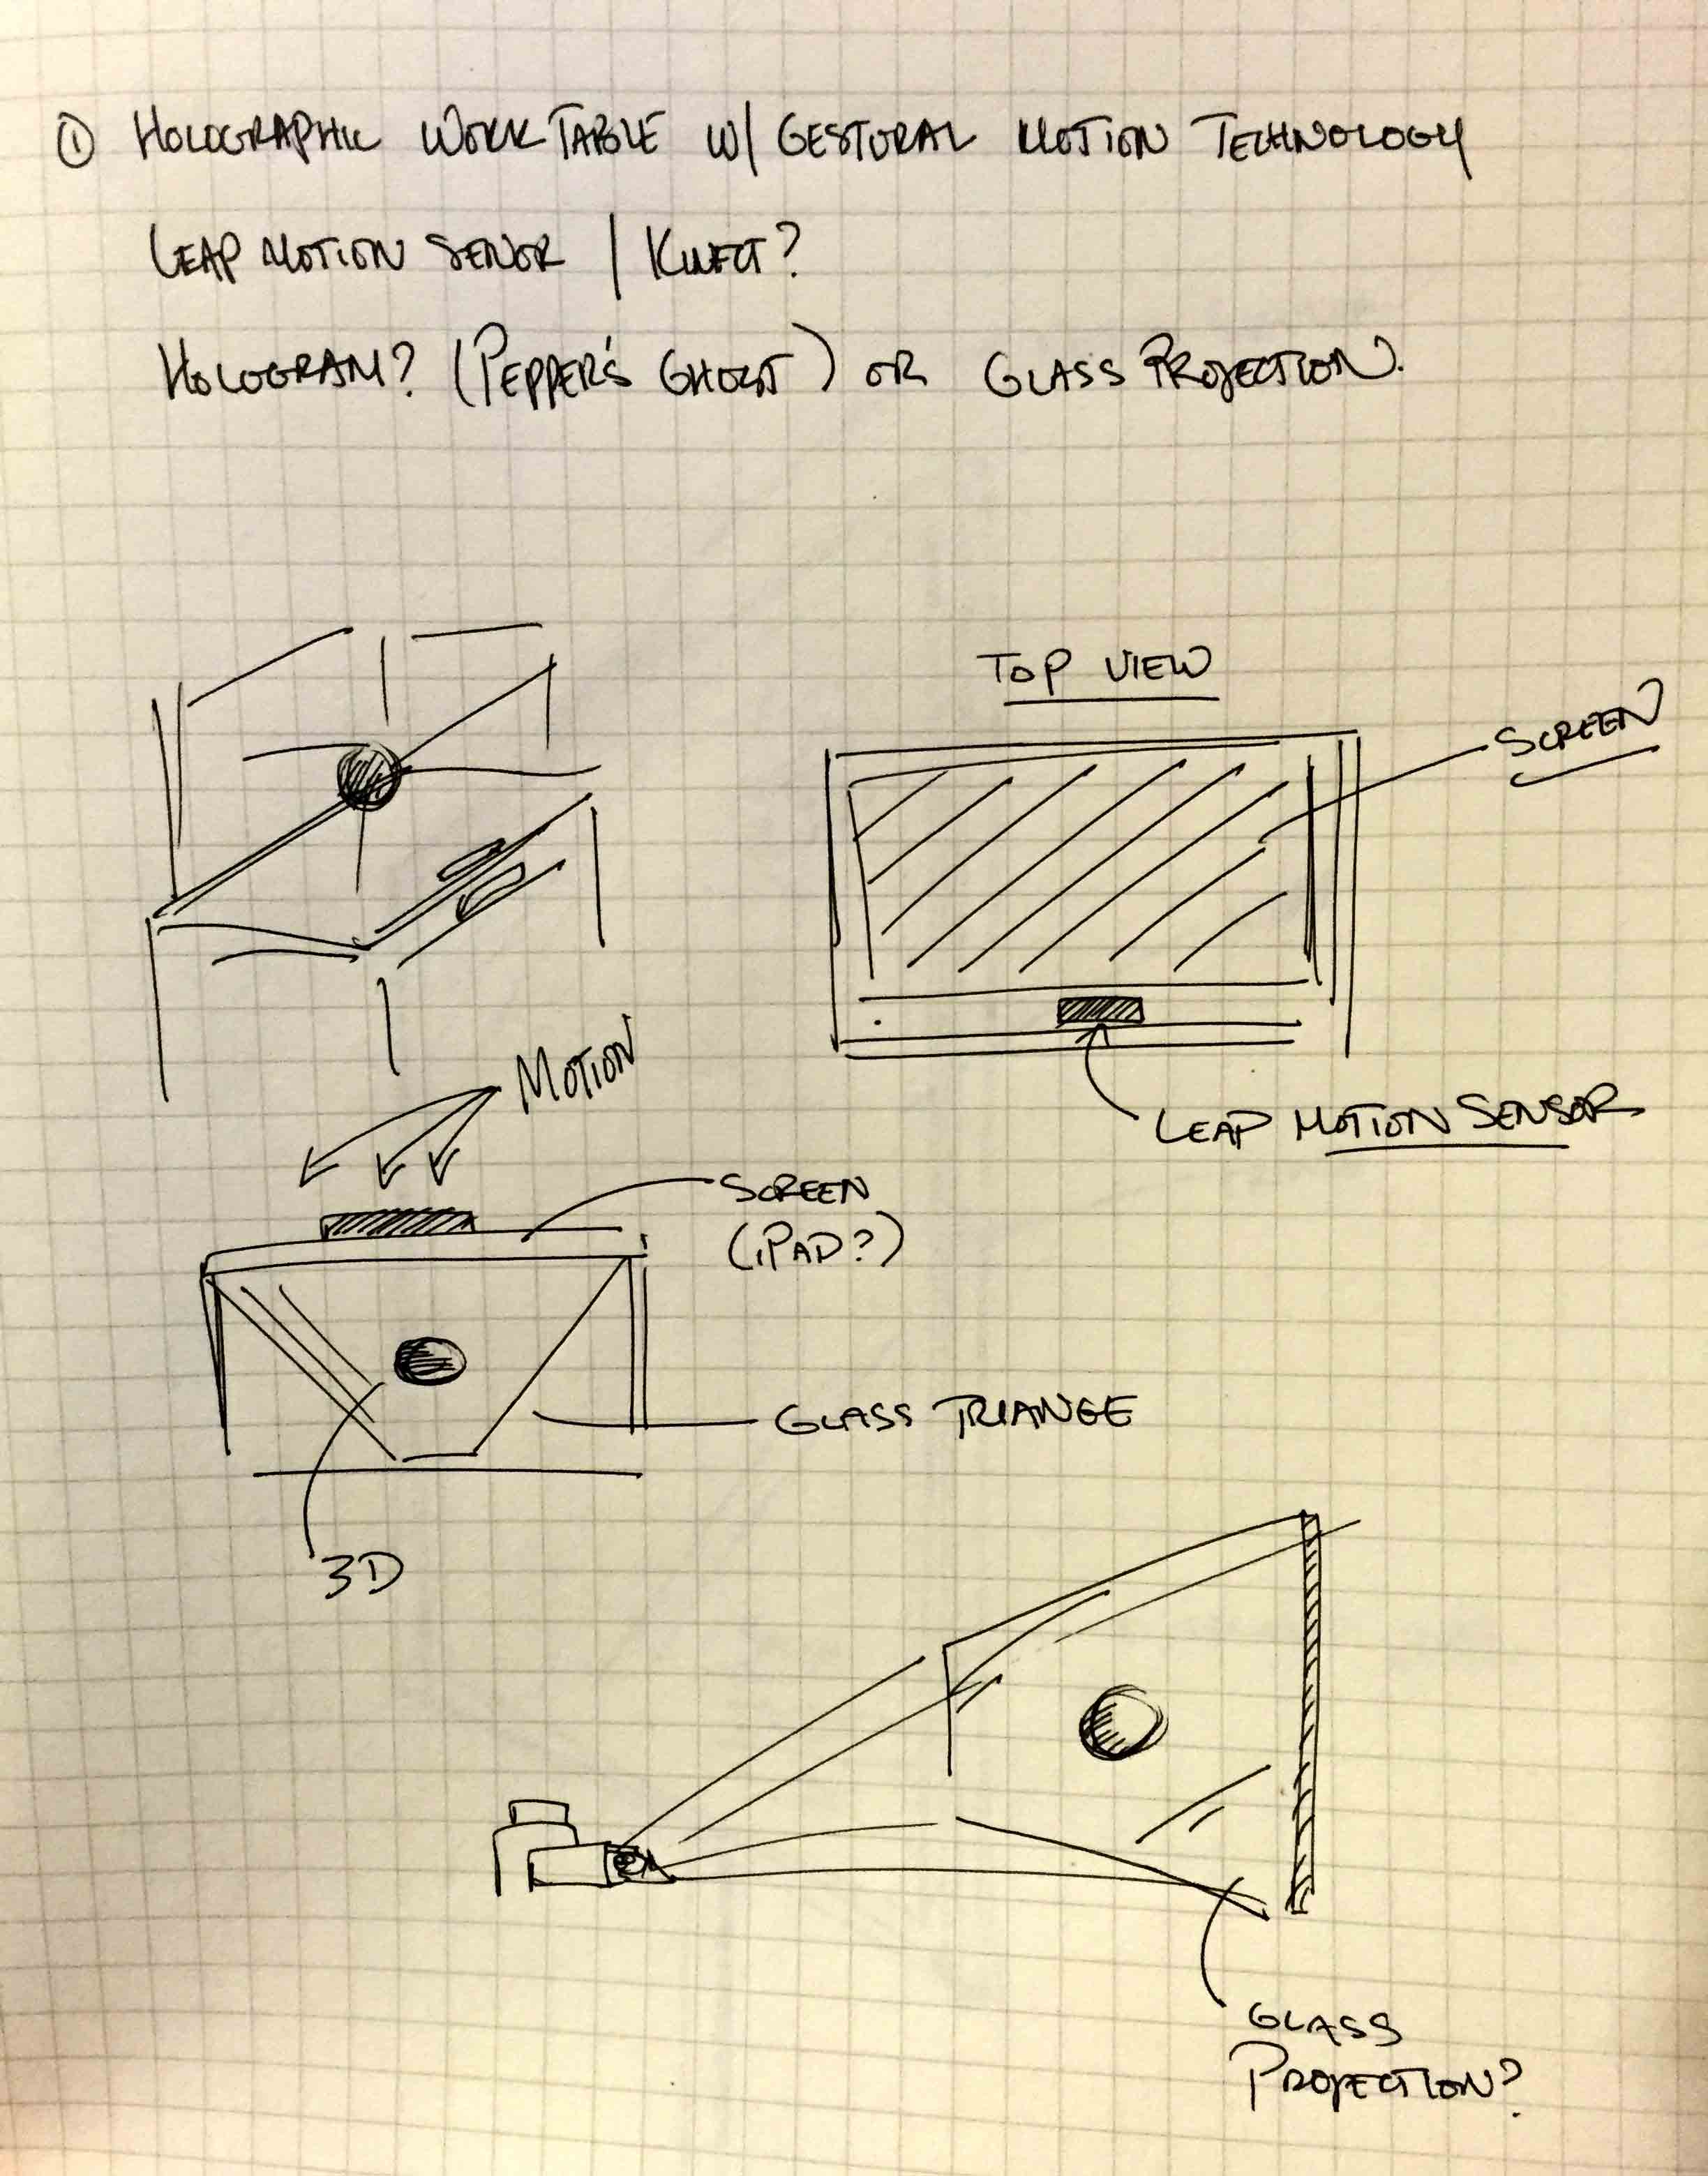 ① HOLOGRAPHIC WORK TABLE W/ GESTURAL MOTION TECHNOLOGY
LEAP MOTION SENOR / KINECT?
HOLOGRAM? (PEPPER'S GHOST) OR GLASS PROJECTION.
TOP VIEW
SCREEN
MOTION
LEAP MOTION SENSOR
SCREEN
(iPAD?)
GLASS TRIANGE
3D
GLASS
PROJECTION?